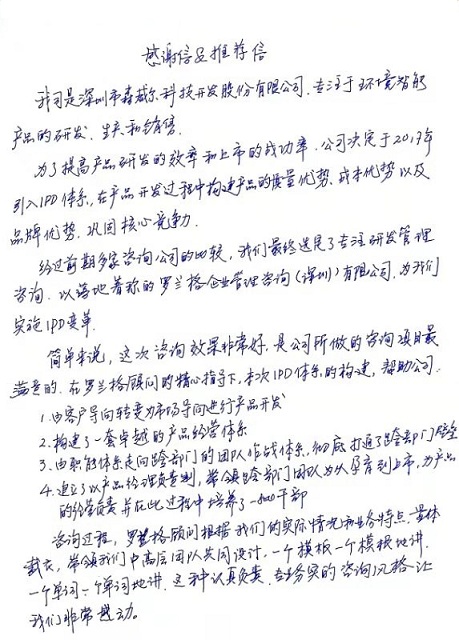 感谢信及推荐信
我司是深圳市森威尔科技开发股份有限公司、专注于环境智能
产品的研发、生产和销售.
为了提高产品研发的效率和上市的成功率.公司决定于2017年
引入IPD体系,在产品开发过程中构建产品的质量优势、成本优势以及
品牌优势、巩固核心竞争力.
经过前期多家咨询公司的比较,我们最终选定了专注研发管理
咨询、以落地著称的罗兰格企业管理咨询(深圳)有限公司,为我们
实施IPD变革.
简单来说,这次咨询效果非常好.是公司所做的咨询项目最
满意的.在罗兰格顾问的精心指导下,本次IPD体系的构建,帮助公司:
1.由客户导向转变为市场导向进行产品开发
2.构建了一套卓越的产品经营体系
3.由职能体系走向跨部门的团队作战体系,彻底打通了跨部门壁垒
4.建立了以产品经理负责制,带领跨部门团队为从孕育到上市,为产品
的经营负责并在此过程中培养了一批干部
咨询过程,罗兰格顾问根据我们的实际情况和业务特点.量体
裁衣,带领我们中高层团队共同设计.一个模板一个模板地讲.
一个单词一个单词地讲.这种认真负责、务实的咨询风格让
我们非常感动。